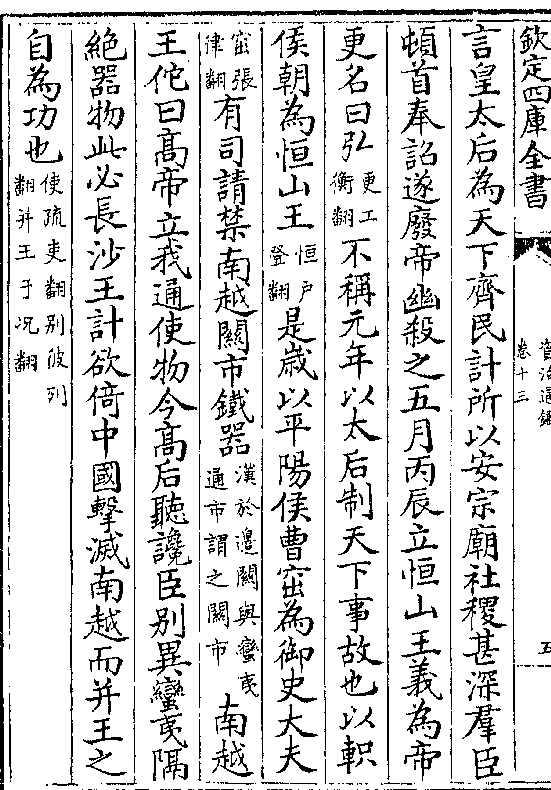 欽定四庫全書
資治通鑑
卷十三
五
言皇太后為天下齊民計所以安宗廟社稷甚深羣臣
頓首奉詔遂廢帝幽殺之五月丙辰立恒山王義為帝
更名曰弘更工衡翻不稱元年以太后制天下事故也以軹
侯朝為恒山王恒户登翻是歲以平陽侯曹窋為御史大夫
窋張律翻有司請禁南越關市鐵器漢於邉關與蠻夷通市謂之關市南越
王佗曰髙帝立我通使物今髙后聽讒臣别異蠻夷隔
絶器物此必長沙王計欲倚中國擊滅南越而并王之
自為功也使疏吏翻别彼列翻并王于况翻